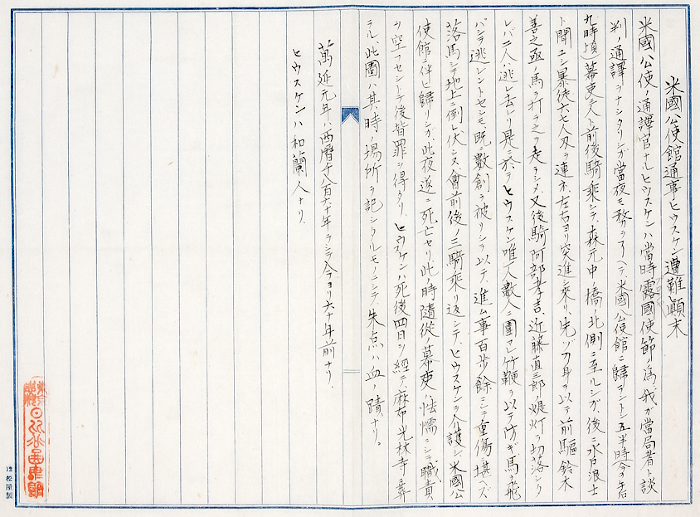 米國公使館通事ヒウスケン遭難顚末
米國公使ノ通譯官ナルヒウスケンハ當時露國使節ノ爲我ガ當局者ト談
判ノ通譯ヲナシタリシガ當夜モ務ヲ了ヘテ米國公使館ニ歸ラントシ五半時今ノ午后
九時頃幕吏人前後騎乘シテ森元中ノ橋ノ北側ニ至ルシガ後ニ水戸浪士
ト聞エシ暴徒六七人刄ヲ連ネ左右ヨリ突進シ來リ先ヅ刀身ヲ以テ前驅鈴木
善之亟ノ馬ヲ打テ之ヲ走ラシメ又後騎阿部孝吉近藤直三郎ノ提灯ヲ切落シタ
レバ二人ハ逃レ去レリ是ニ於テヒウスケン唯一人敵人ニ圍マレ竹鞭ヲ以テ防ギ馬ヲ飛
バシテ逃レントセシモ既ニ數創ヲ被リシヲ以テ進ム事百歩餘ニシテ重傷ニ堪ヘズ
落馬シ地上ニ倒レ伏シヌ會前後ノ三騎乘リ返シテヒウスケンヲ介護シ米國公
使館ニ伴ヒ歸リシガ此夜遂ニ死亡セリ此ノ時隨從ノ幕吏ハ怯懦ニシテ職責
ヲ空フセシトテ後皆罪ヲ得タリヒウスケンハ死後四日ヲ經テ麻布光林寺ニ葬
ラル此圖ハ其ノ時ノ場所ヲ記シタルモノニシテ朱点ハ血ノ蹟ナリ
萬延元年ハ西曆千八百六十年ニシテ今ヨリ六十年前ナリ
ヒウスケンハ和蘭人ナリ